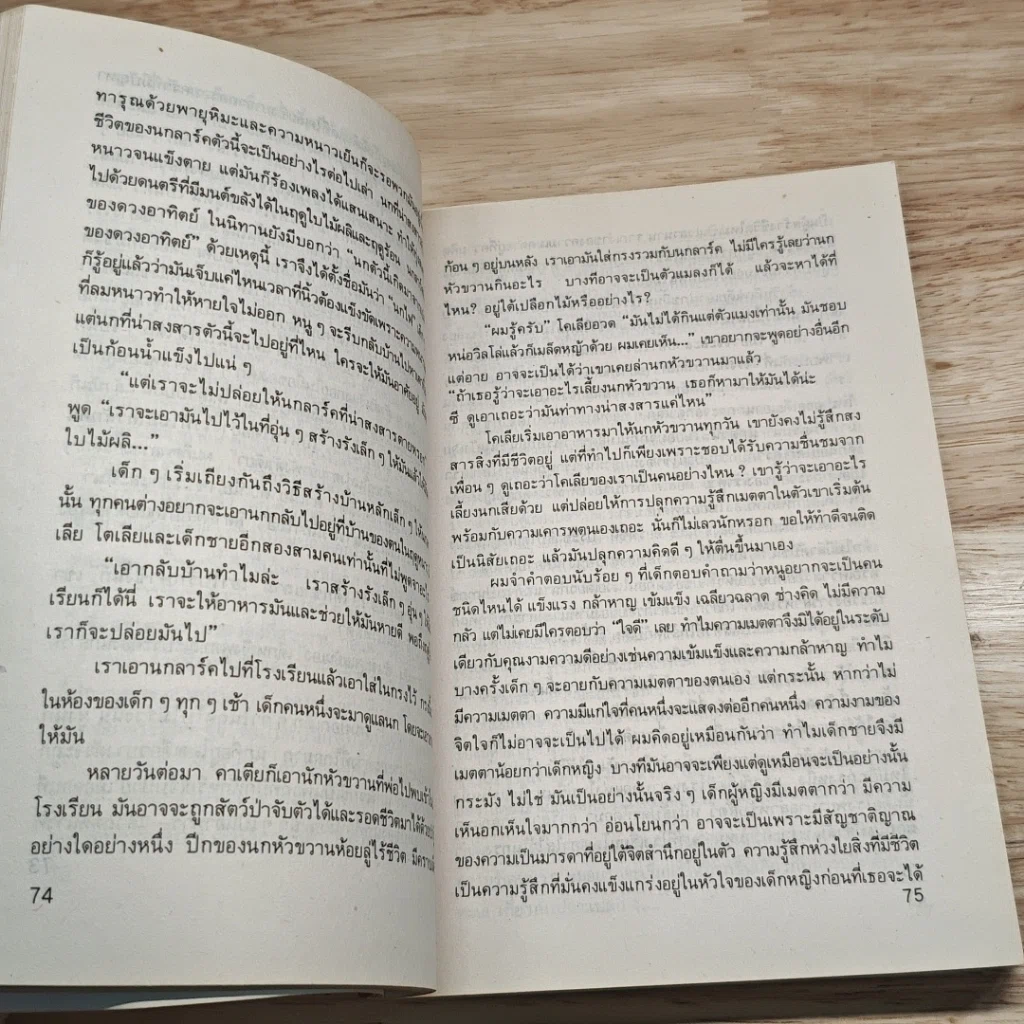 ทารุณด้วยพายุหิมะและความหนาวเย็นก็จะรอพวก
ชีวิตของนกลาร์คตัวนี้จะเป็นอย่างไรต่อไปเล่า นกที่น่าสงสาร
หนาวจนแข็งตาย แต่มันก็ร้องเพลงได้แสนเสนาะ ทำให้
ไปด้วยดนตรีที่มีมนต์ขลังได้ในฤดูใบไม้ผลิและฤดูร้อน
ของดวงอาทิตย์ ในนิทานยังมีบอกว่า “นกตัวนี้เกิดมาจาก
ของดวงอาทิตย์” ด้วยเหตุนี้ เราจึงได้ตั้งชื่อมันว่า “นกไฟ”
ก็รู้อยู่แล้วว่ามันเจ็บแค่ไหนเวลาที่นิ้วต้องแข็งขัดเพราะความหนาว
ที่ลมหนาวทำให้หายใจไม่ออก หนู ๆ จะรีบกลับบ้านไปหา
แต่นกที่น่าสงสารตัวนี้จะไปอยู่ที่ไหน ใครจะให้มันอาศัยอยู่
เป็นก้อนน้ำแข็งไปแน่ ๆ
“แต่เราจะไม่ปล่อยให้นกลาร์คที่น่าสงสารตายหรอก
พูด “เราจะเอามันไปไว้ในที่อุ่น ๆ สร้างรังเล็ก ๆ ให้มันแล้ว
ใบไม้ผลิ...”
เด็ก ๆ เริ่มเถียงกันถึงวิธีสร้างบ้านหลักเล็ก ๆ ให้
นั้น ทุกคนต่างอยากจะเอานกกลับไปอยู่ที่บ้านของตนในฤดูหนาว
เลีย โตเลียและเด็กชายอีกสองสามคนเท่านั้นที่ไม่พูดจาอะไร
“เอากลับบ้านทำไมล่ะ เราสร้างรังเล็ก ๆ อุ่น ๆ ให้
เรียนก็ได้นี่ เราจะให้อาหารมันและช่วยให้มันหายดี พอถึง
เราก็จะปล่อยมันไป”
เราเอานกลาร์คไปที่โรงเรียนแล้วเอาใส่ในกรงไว้
ในห้องของเด็ก ๆ ทุก ๆ เช้า เด็กคนหนึ่งจะมาดูแลนก โดยจะเอา
ให้มัน
หลายวันต่อมา คาเตียก็เอานักหัวขวานที่พ่อไปพบเข้า
โรงเรียน มันอาจจะถูกสัตว์ป่าจับตัวได้และรอดชีวิตมาได้ด้วย
อย่างใดอย่างหนึ่ง ปีกของนกหัวขวานห้อยลู่ไร้ชีวิต มี
74
ก้อน ๆ อยู่บนหลัง เราเอามันใส่กรงรวมกับนกลาร์ค ไม่มีใครรู้เลยว่านก
หัวขวานกินอะไร บางทีอาจจะเป็นตัวแมลงก็ได้ แล้วจะหาได้ที่
ไหน? อยู่ใต้เปลือกไม้หรืออย่างไร?
“ผมรู้ครับ” โคเลียอวด “มันไม่ได้กินแต่ตัวแมงเท่านั้น มันชอบ
หน่อวิลโล่แล้วก็เมล็ดหญ้าด้วย ผมเคยเห็น...” เขาอยากจะพูดอย่างอื่นอีก
แต่อาย อาจจะเป็นได้ว่าเขาเคยล่านกหัวขวานมาแล้ว
“ถ้าเธอรู้ว่าจะเอาอะไรเลี้ยงนกหัวขวาน เธอก็หามาให้มันได้น่ะ
ซี ดูเอาเถอะว่ามันท่าทางน่าสงสารแค่ไหน”
โคเลียเริ่มเอาอาหารมาให้นกหัวขวานทุกวัน เขายังคงไม่รู้สึกสง
สารสิ่งที่มีชีวิตอยู่ แต่ที่ทำไปก็เพียงเพราะชอบได้รับความชื่นชมจาก
เพื่อน ๆ ดูเถอะว่าโคเลียของเราเป็นคนอย่างไหน ? เขารู้ว่าจะเอาอะไร
เลี้ยงนกเสียด้วย แต่ปล่อยให้การปลุกความรู้สึกเมตตาในตัวเขาเริ่มต้น
พร้อมกับความเคารพตนเองเถอะ นั้นก็ไม่เลวนักหรอก ขอให้ทำดีจนติด
เป็นนิสัยเถอะ แล้วมันปลุกความคิดดี ๆ ให้ตื่นขึ้นมาเอง
ผมจำคำตอบนับร้อย ๆ ที่เด็กตอบคำถามว่าหนูอยากจะเป็นคน
ชนิดไหนได้ แข็งแรง กล้าหาญ เข้มแข็ง เฉลียวฉลาด ช่างคิด ไม่มีความ
กลัว แต่ไม่เคยมีใครตอบว่า “ใจดี” เลย ทำไมความเมตตาจึงมิได้อยู่ในระดับ
เดียวกับคุณงามความดีอย่างเช่นความเข้มแข็งและความกล้าหาญ ทำไม
บางครั้งเด็ก ๆ จะอายกับความเมตตาของตนเอง แต่กระนั้น หากว่าไม่
มีความเมตตา ความมีแก่ใจที่คนหนึ่งจะแสดงต่ออีกคนหนึ่ง ความงามของ
จิตใจก็ไม่อาจจะเป็นไปได้ ผมคิดอยู่เหมือนกันว่า ทำไมเด็กชายจึงมี
เมตตาน้อยกว่าเด็กหญิง บางทีมันอาจจะเพียงแต่ดูเหมือนจะเป็นอย่างนั้น
กระมัง ไม่ใช่ มันเป็นอย่างนั้นจริง ๆ เด็กผู้หญิงมีเมตตากว่า มีความ
เห็นอกเห็นใจมากกว่า อ่อนโยนกว่า อาจจะเป็นเพราะมีสัญชาติญาณ
ของความเป็นมารดาที่อยู่ใต้จิตสำนึกอยู่ในตัว ความรู้สึกห่วงใยสิ่งที่มีชีวิต
เป็นความรู้สึกที่มั่นคงแข็งแกร่งอยู่ในหัวใจของเด็กหญิงก่อนที่เธอจะได้
75